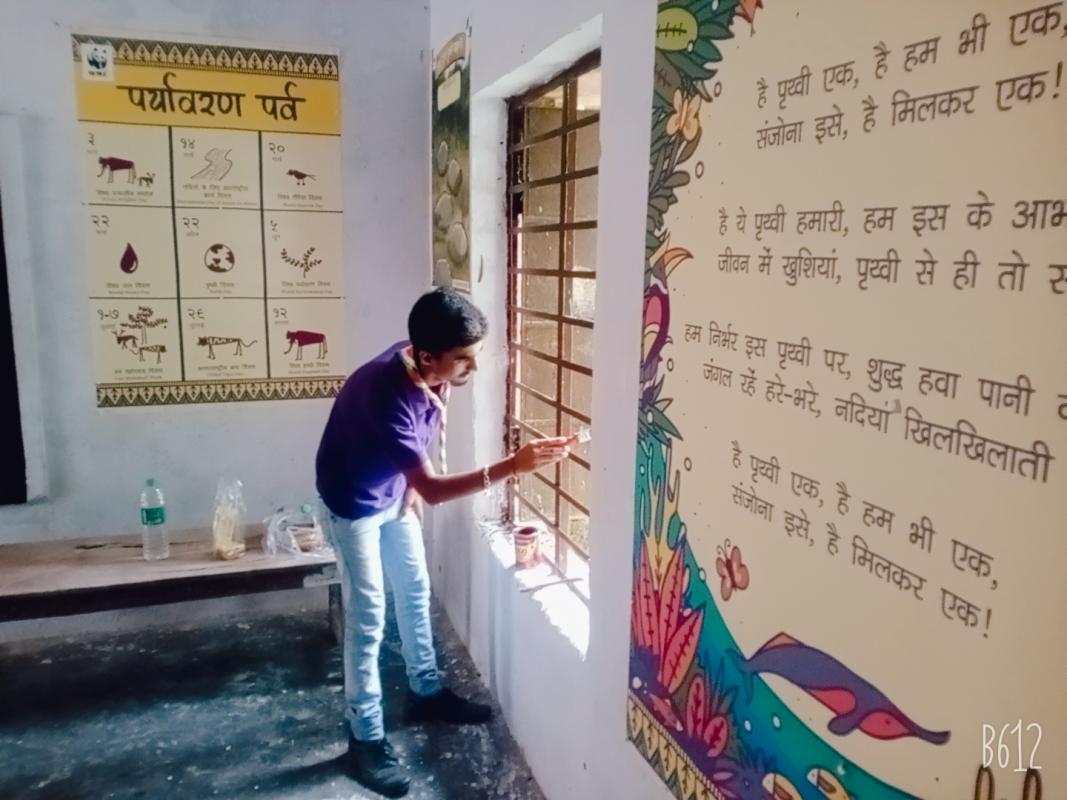 WWF
पर्यावरण पर्व
३
मार्च
विश्व वन्यजीव दिवस
World Wildlife Day
१४
मार्च
नदियों के लिए अंतरराष्ट्रीय
कार्य दिवस
२०
मार्च
विश्व गौरैया दिवस
World Sparrow Day
२२
मार्च
विश्व जल दिवस
World Water Day
२२
पृथ्वी दिवस
Earth Day
५
जून
विश्व पर्यावरण दिवस
World Environment Day
१-७
जुलाई
वन महोत्सव दिवस
Van Mahotsav Week
२९
जुलाई
अन्तरराष्ट्रीय बाघ दिवस
Global Tiger Day
१२
विश्व हाथी दिवस
World Elephant Day
है पृथ्वी एक, है हम भी एक,
संजोना इसे, है मिलकर एक!
है ये पृथ्वी हमारी, हम इस के
जीवन में खुशियां, पृथ्वी से ही तो
हम निर्भर इस पृथ्वी पर, शुद्ध हवा पानी
जंगल रहें हरे-भरे, नदियां खिलखिलाती
है पृथ्वी एक, है हम भी एक,
संजोना इसे, है मिलकर एक!
B612